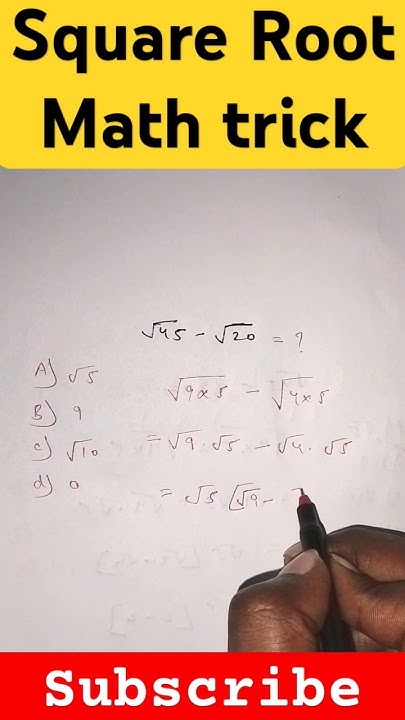 Square Root
Math trick
√45 - √20 = ?
A) √5
B) 9
c) √10
d) 0
√9×5 - √4×5
= √9 . √5 - √4 . √5
= √5 [√9 -
Subscribe